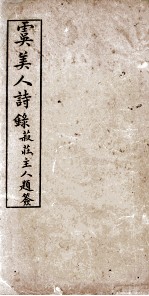 虞美人詩錄菽莊主人題簽